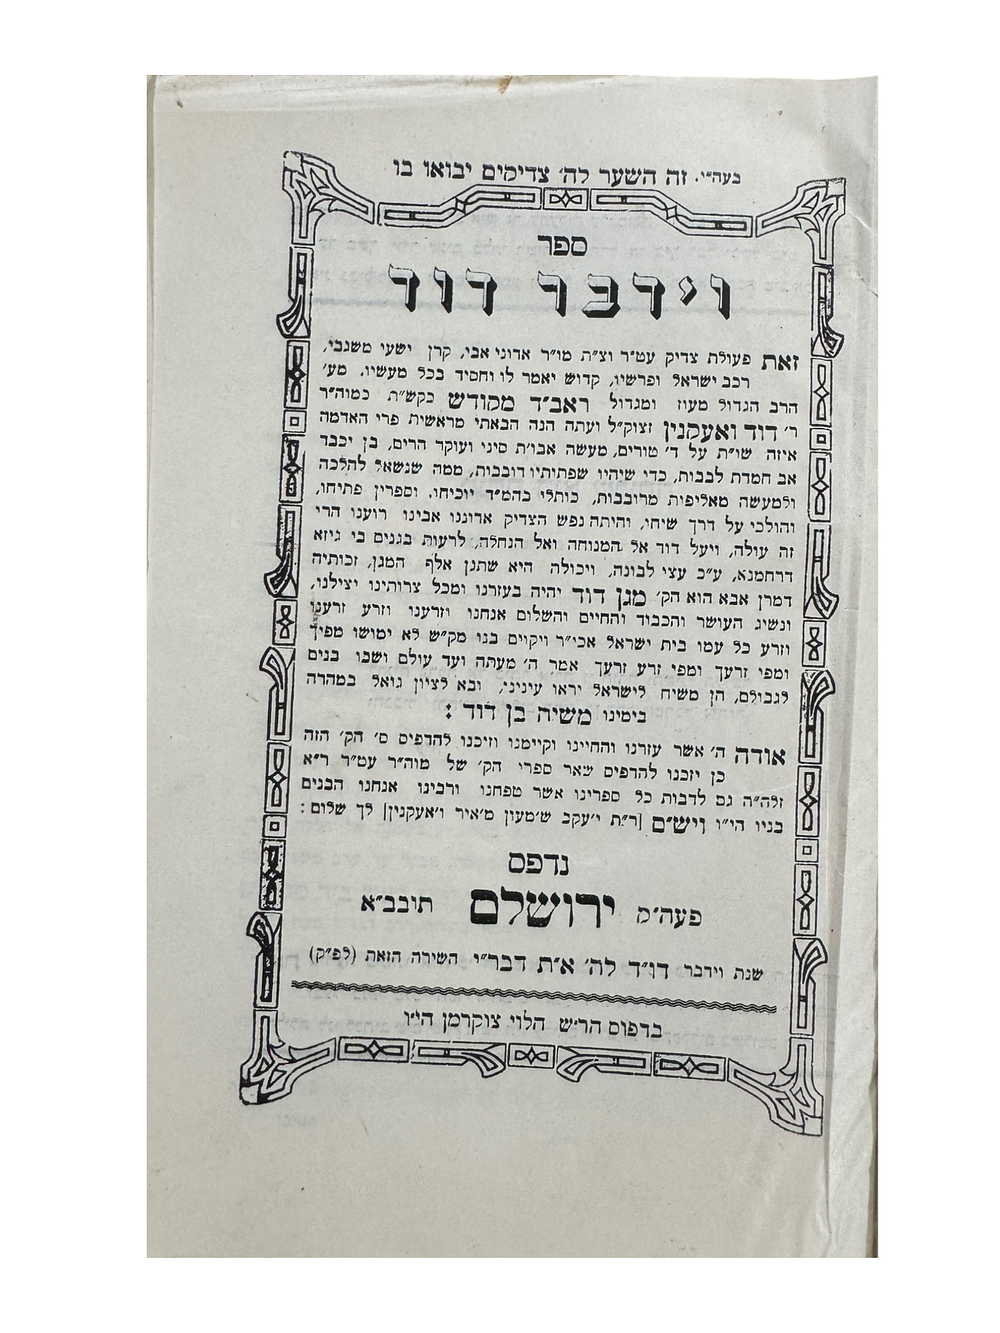 בעה״י. זה השער לה׳ צדיקים יבואו בו
ספר
וידבר דוד
זאת פעולת צדיק עט״ר וצ״ת מו״ר אדוני אבי, קרן ישעי משגבי,
רכב ישראל ופרשיו, קדוש יאמר לו וחסיד בכל מעשיו. מע׳
הרב הגדול מעוז ומגדול ראב״ד מקודש בקש״ת כמוה״ר
ר׳ דוד ואעקנין זצוק״ל ועתה הנה הבאתי מראשית פרי האדמה
איזה שו״ת על ד׳ טורים, מעשה אבו׳ת סיני ועוקר הרים, בן יכבד
אב חמדת לבבות, כדי שיהיו שפתיותיו דובבות, ממה שנשאל להלכה
ולמעשה מאליפות מרובבות, כותלי בהמ״ד יוכיחו. וספרין פתיחו,
והולכי על דרך שיחו, והיתה נפש הצדיק אדוננו אבינו רוענו הרי
זה עולה, ויעל דוד אל המנוחה ואל הנחלה, לרעות בגנים בי גיזא
דרחמנא, ע״כ עצי לבונה, ויכולה היא שתגן אלף המגן, זכותיה
דמרן אבא הוא הק׳ מגן דוד יהיה בעזרנו ומכל צרותינו יצילנו,
ונשיג העושר והכבוד והחיים והשלום אנחנו וזרענו וזרע זרענו
וזרע כל עמו בית ישראל אכי״ר ויקויים בנו מק״ש לא ימושו מפיך
ומפי זרעך ומפי זרע זרעך אמר ה׳ מעתה ועד עולם ושבו בנים
לגבולם, הן משיח לישראל יראו עינינו, ובא לציון גואל במהרה
בימינו משיח בן דוד :
אודה ה׳ אשר עזרנו והחיינו וקיימנו וזיכנו להדפיס ס׳ הק׳ הזה
כן יזכנו להדפיס שאר ספרי הק׳ של מוה״ר עט״ר ר״א
זלה״ה גם לרבות כל ספרינו אשר טפחנו ורבינו אנחנו הבנים
בניו הי״ו וי״ש״ם [ר״ת י׳עקב ש׳מעון מ׳איר ו׳אעקנין] לך שלום :
נדפס
פעה״ק ירושלם תובב״א
שנת וידבר דו״ד לה׳ א״ת דבר״י השירה הזאת (לפ״ק)
בדפוס הר״ש הלוי צוקרמן הי״ו